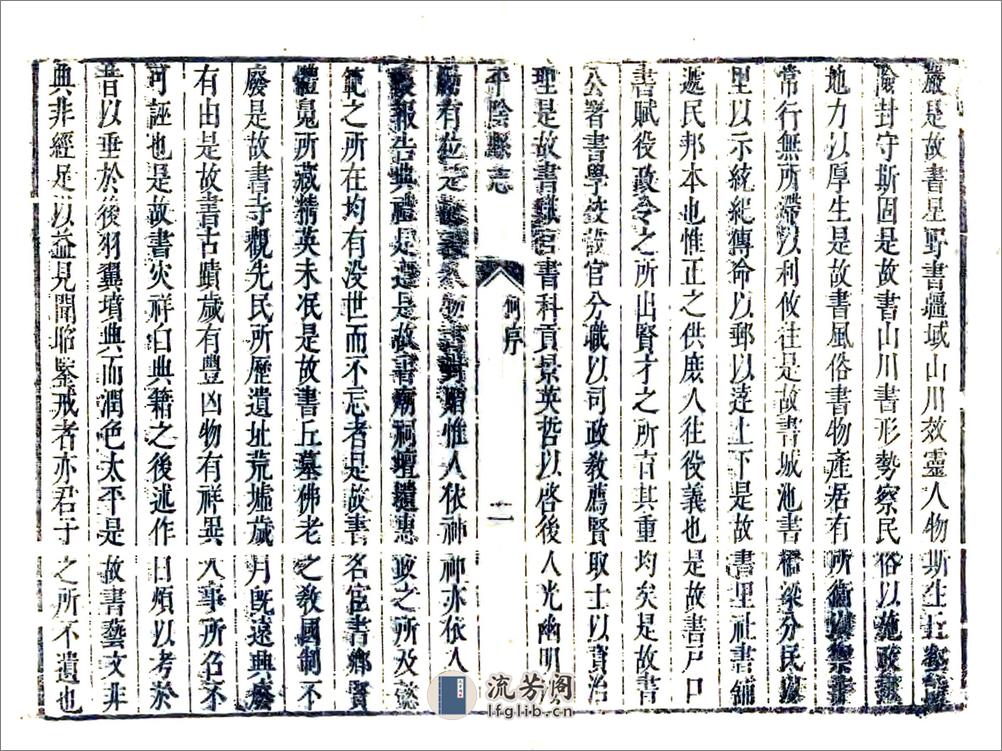 嚴是故書星野書疆域山川效靈人物斯生
險封守斯固是故書山川書形勢察民俗以施政
地力以厚生是故書風俗書物產居有所衞
常行無所滯以利攸往是故書城池書橋梁分民
里以示統紀傳命以郵以逹上下是故書里社書鋪
遞民邦本也惟正之供庶人往役義也是故書戸口
書賦役政令之所出賢才之所育其重均矣是故書
公署書學校設官分職以司政教薦賢取士以資治
理是故書職官書科貢景英哲以啓後人光幽明以
平隂縣志
何序
二
有位是人物書封贈惟人依神神亦依人
報告典禮是遵是故書廟祠壇壝惠政之所及懿
範之所在均有没世而不忘者是故書名宦書鄉賢
體魄所藏精英未泯是故書丘墓佛老之教國制不
廢是故書寺觀先民所歷遺址荒墟歲月旣遠興廢
有由是故書古蹟歲有豐凶物有祥異人事所召不
可誣也是故書灾祥曰典籍之後述作日煩以考於
昔以垂於後羽翼墳典而潤色太平是故書藝文非
典非經足以益見聞昭鑒戒者亦君子之所不遺也
流芳阁
lfglib.cn